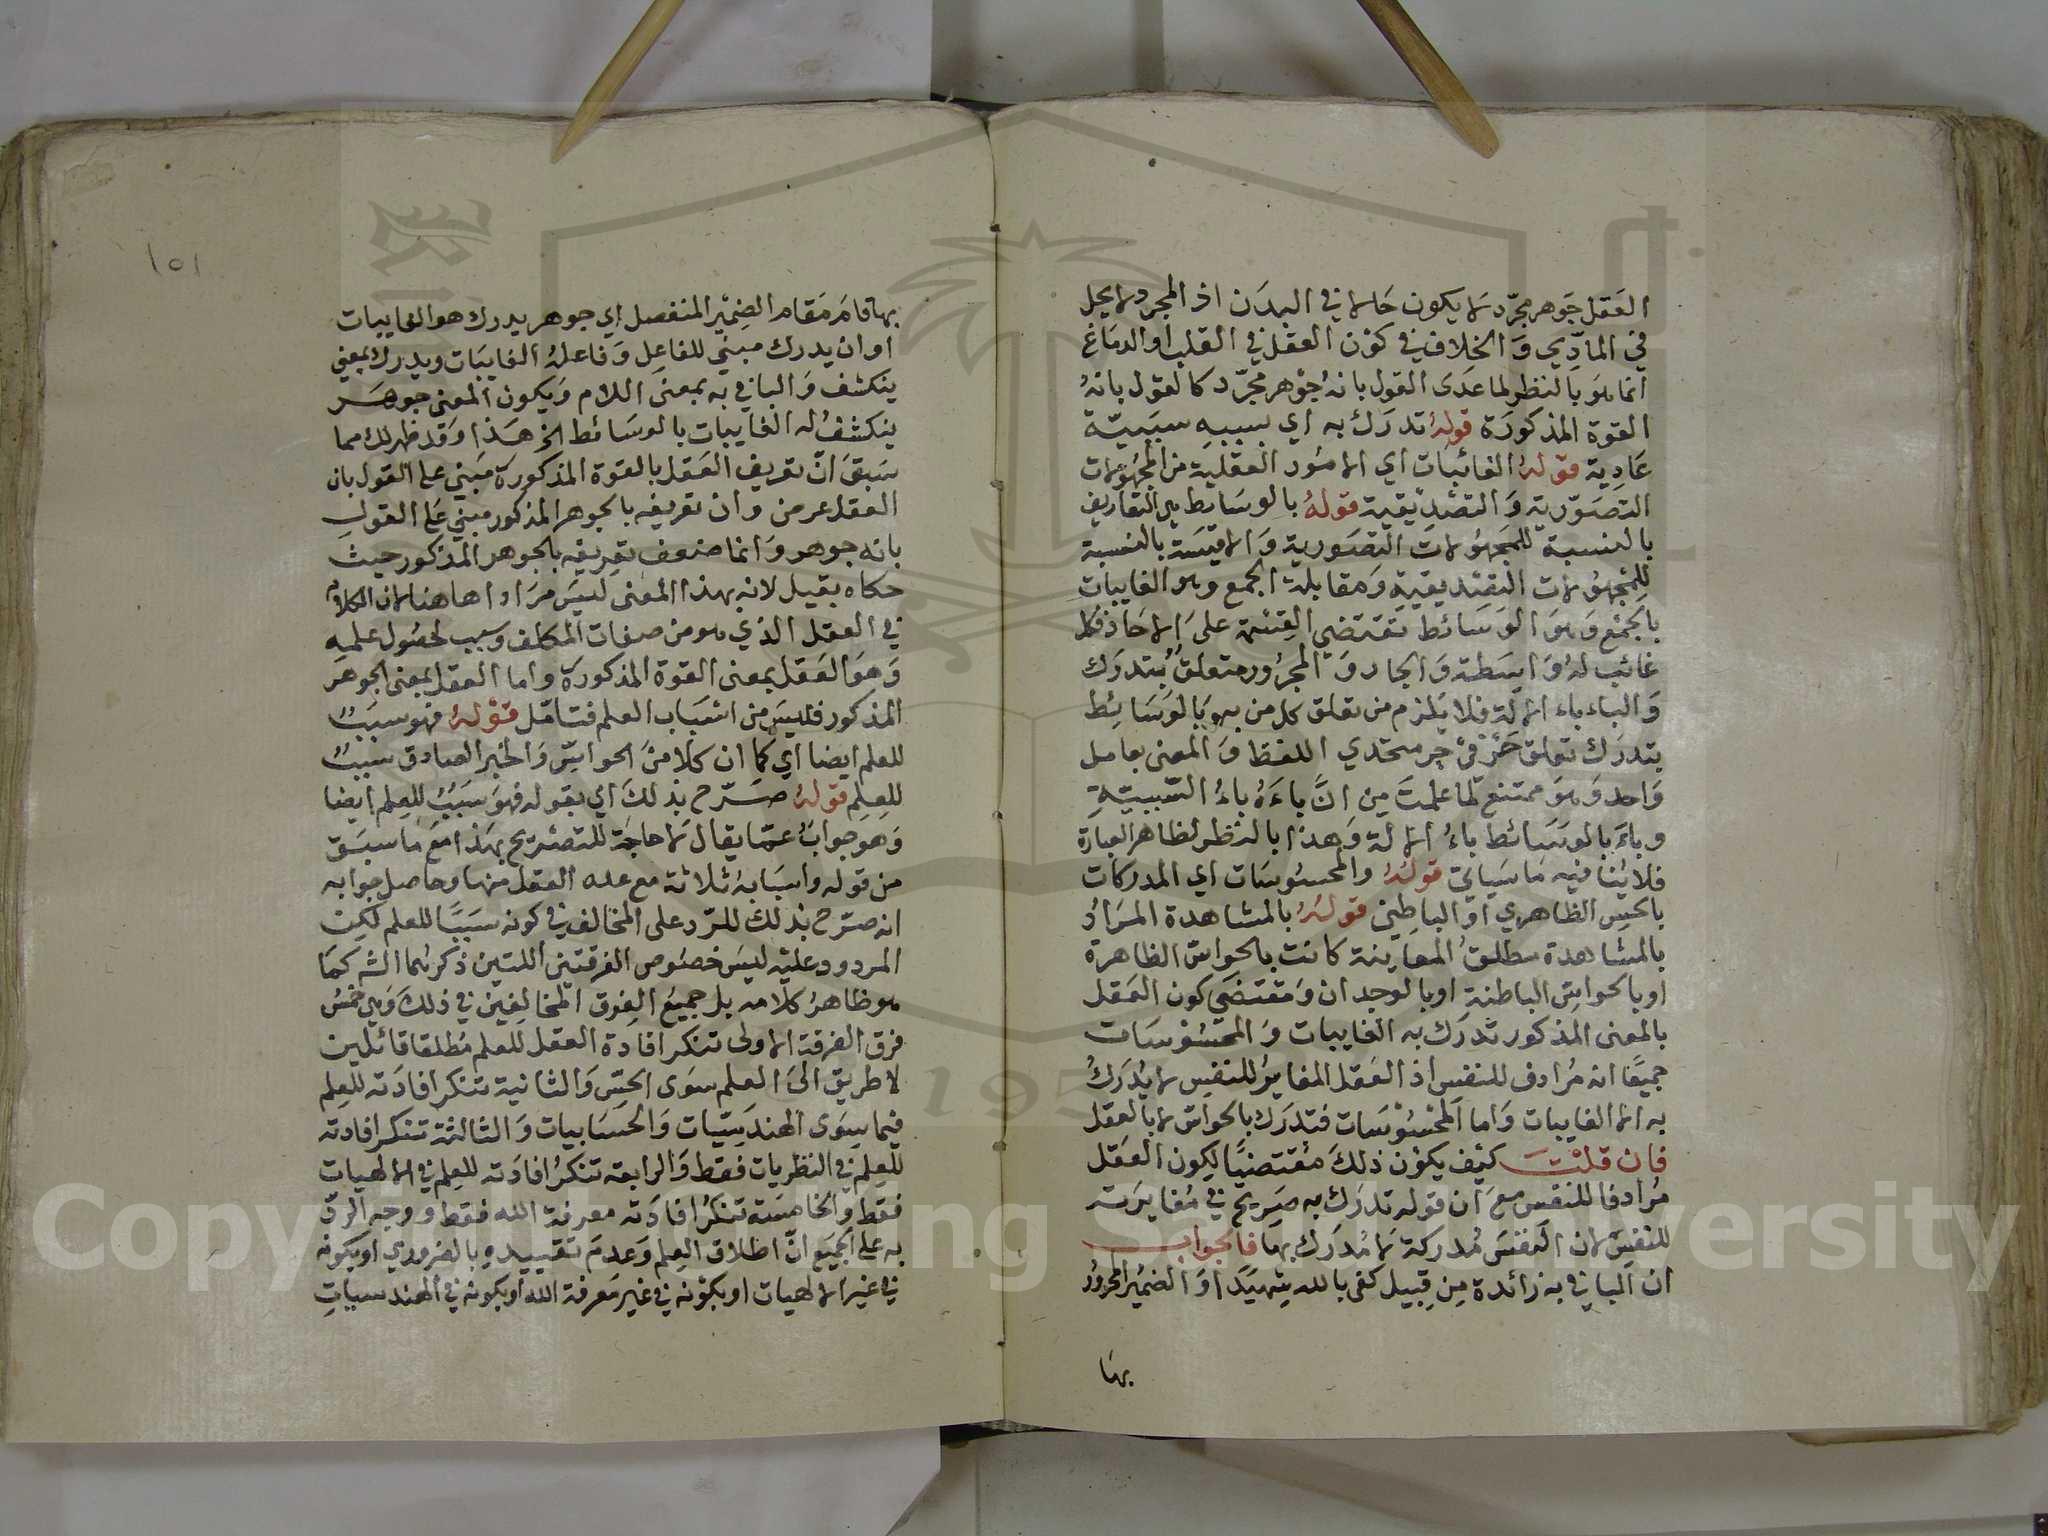 العقل جوهر مجرد لا يكون حالا في البدن اذ المجرد لا يحل
في المادي والخلاف في كون العقل في القلب او الدماغ
انما هو بالنظر لما عدى القول بانه جوهر مجرد كالقول بانه
القوة المذكورة قوله تدرك به اي بسببه سببية
عادية قوله الغائبات اي الامور العقلية من المجهولات
التصورية والتصديقية قوله بالوسايط هي التعاريف
بالنسبة للمجهولات التصورية والاقيسة بالنسبة
للمجهولات التصديقية ومقابلة الجمع وهو الغايبات
بالجمع وهو الوسائط تقتضي القسمة على الاحاد فكل
غائب له واسطة والجار والمجرور متعلق بتدرك
والباء باء الالة فلا يلزم من تعلق كل من به وبالوسائط
بتدرك تعلق حرفي جر متحدي اللفظ والمعنى بعامل
واحد وهو ممتنع لما علمت من ان باءه باء السببية
وباء بالوسائط باء الالة وهذا بالنظر لظاهر العبارة
فلا ينافيه ما سياتي قوله والمحسوسات اي المدركات
بالحس الظاهري او الباطني قوله بالمشاهدة المراد
بالمشاهدة مطلق المعاينة كانت بالحواس الظاهرة
او بالحواس الباطنة او بالوجدان ومقتضى كون العقل
بالمعنى المذكور تدرك به الغايبات والمحسوسات
جميعا انه مرادف للنفس اذ العقل المغاير للنفس لا يدرك
به الا الغايبات واما المحسوسات فتدرك بالحواس لا بالعقل
فان قلت كيف يكون ذلك مقتضيا لكون العقل
مرادفا للنفس مع ان قوله تدرك به صريح في مغايرته
للنفس لان النفس مدركة لا مدرك بها فالجواب
ان البا في به زائدة من قبيل كفى بالله شهيدا والضمير المجرور
بها
١٥١
بها قام مقام الضمير المنفصل اي جوهر يدرك هو الغايبات
او ان يدرك مبني للفاعل وفاعله الغايبات ويدرك بمعنى
ينكشف والبا في به بمعنى اللام ويكون المعنى جوهر
ينكشف له الغايبات بالوسائط الخ هذا وقد ظهر لك مما
سبق ان تعريف العقل بالقوة المذكورة مبني على القول بان
العقل عرض وان تعريفه بالجوهر المذكور مبني على القول
بانه جوهر وانما ضعف تعريفه بالجوهر المذكور حيث
حكاه بقيل لانه بهذا المعنى ليس مرادا هاهنا لان الكلام
في العقل الذي هو من صفات المكلف وسبب لحصول علمه
وهو العقل بمعنى القوة المذكورة واما العقل بمعنى الجوهر
المذكور فليس من اسباب العلم فتامل قوله فهو سبب
للعلم ايضا اي كما ان كلا من الحواس والخبر الصادق سبب
للعلم قوله صرح بذلك اي بقوله فهو سبب للعلم ايضا
وهو جواب عما يقال لا حاجة للتصريح بهذا مع ما سبق
من قوله واسبابه ثلاثة مع عده العقل منها وحاصل جوابه
انه صرح بذلك للرد على المخالف في كونه سببا للعلم لكن
المردود عليه ليس خصوص الفرقتين اللتين ذكرهما الشه كما
هو ظاهر كلامه بل جميع الفرق المخالفين في ذلك وهي خمس
فرق الفرقة الاولى تنكر افادة العقل للعلم مطلقا قائلين
لا طريق الى العلم سوى الحس والثانية تنكر افادته للعلم
فيما سوى الهندسيات والحسابيات والثالثة تنكر افادته
للعلم في النظريات فقط والرابعة تنكر افادته للعلم في الالهيات
فقط والخامسة تنكر افادته معرفة الله فقط ووجه الرد
به على الجميع ان اطلاق العلم وعدم تقييده بالضروري او بكونه
في غير الالهيات او بكونه في غير معرفة الله او بكونه في الهندسيات
Copyright © King Saud University